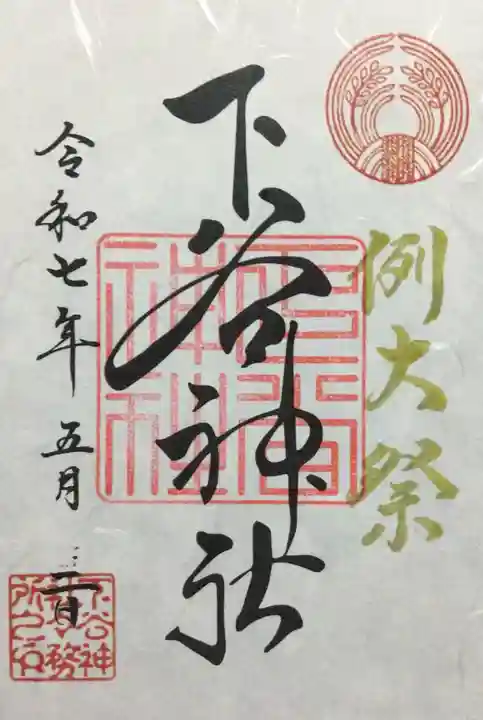 例大祭
下谷神社
下谷
神社
令和七年 五月 二日
下谷神
社務
所之印